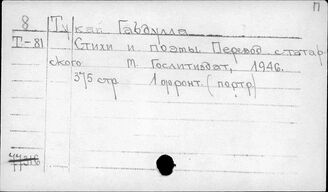 П
8 Тукай Габдулла
Т-81 Стихи и поэмы Перевод с татар
ского М. Гослитиздат, 1946.
375 стр 1 фронт. (портр)